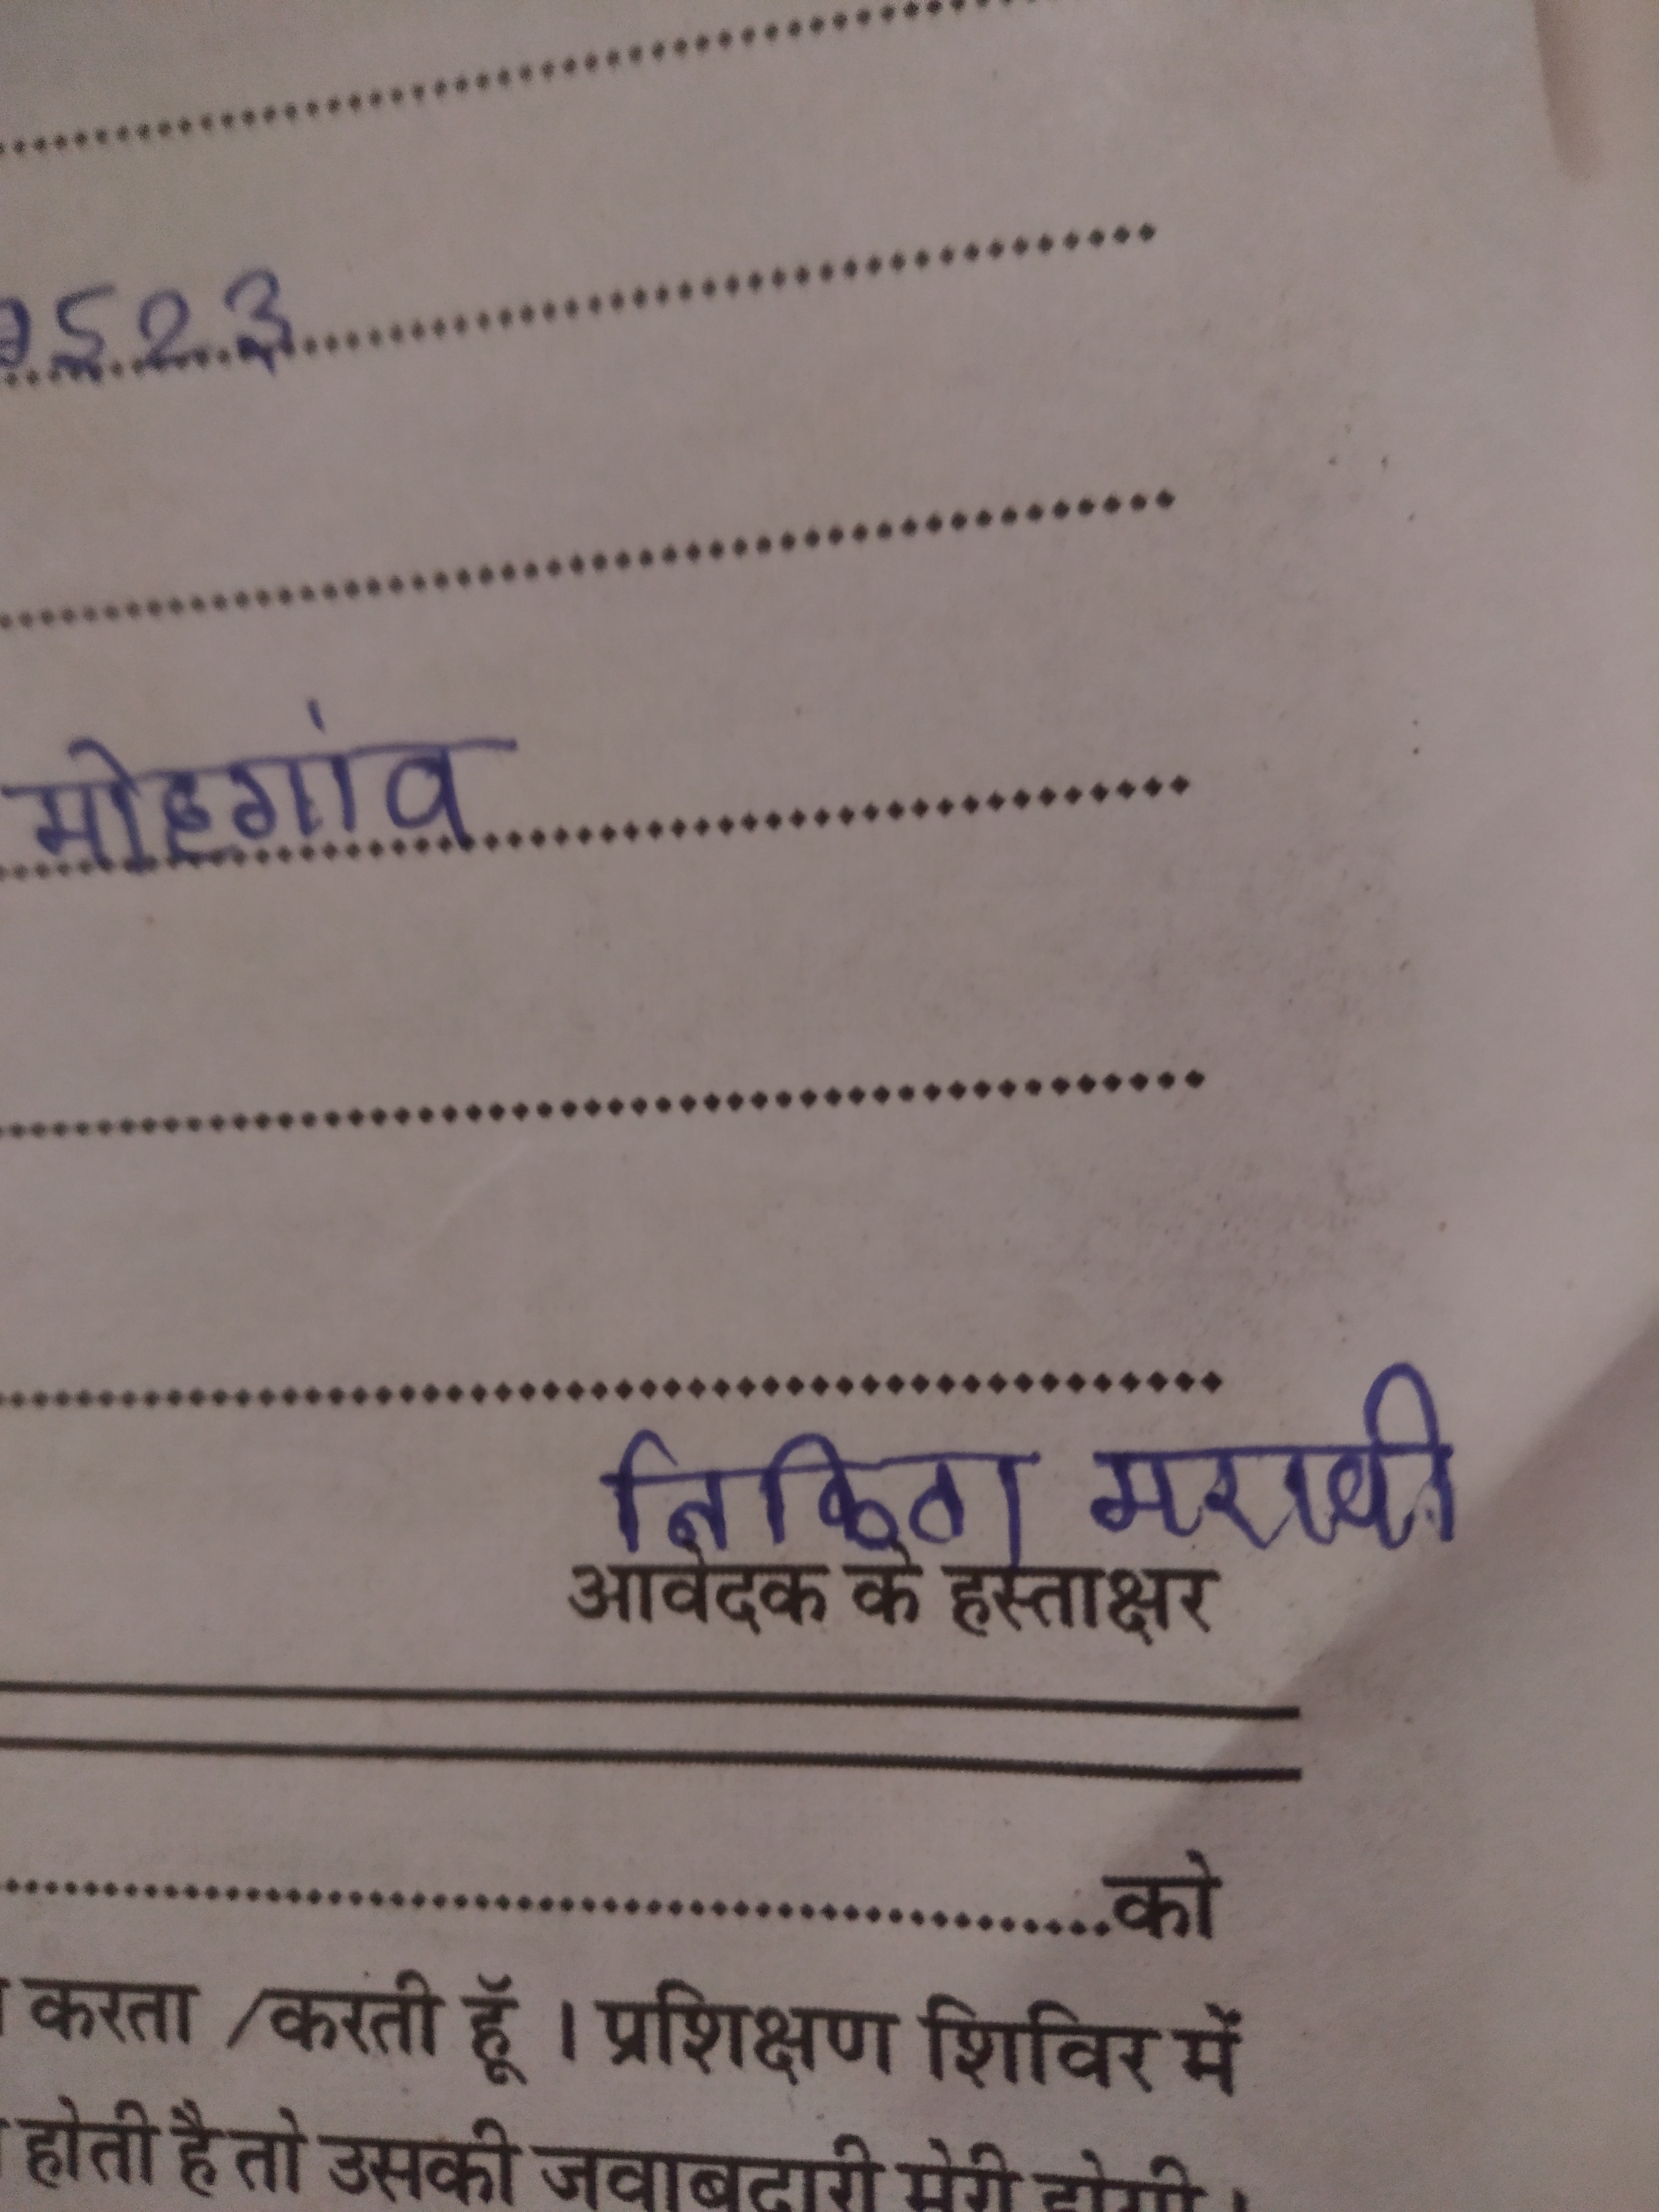 523
मोहगांव
निकिता मरावी
आवेदक के हस्ताक्षर
को
करता /करती हूँ । प्रशिक्षण शिविर में
होती है तो उसकी जवाबदारी मेरी होगी ।